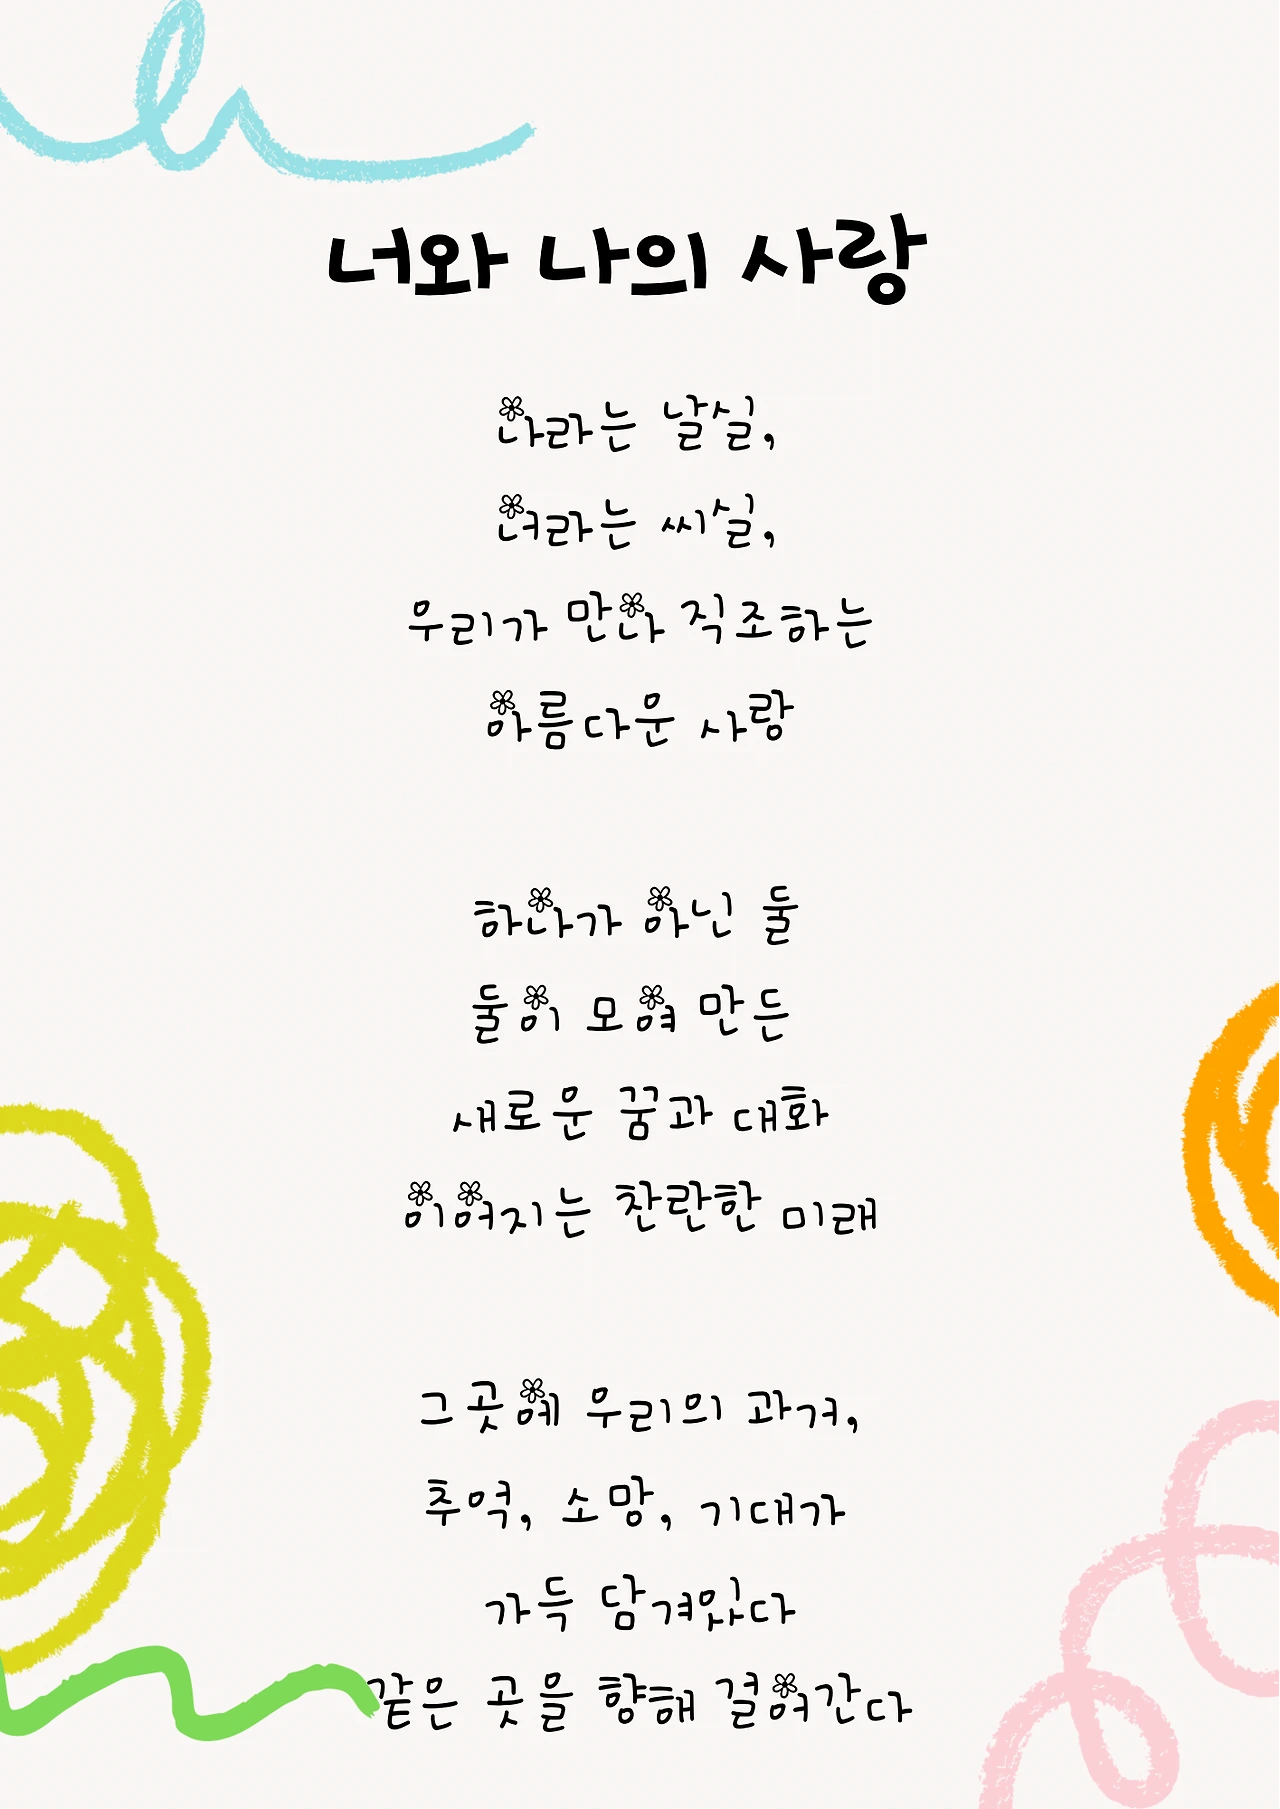 너와 나의 사랑
나라는 날실,
너라는 씨실,
우리가 만나 직조하는
아름다운 사랑
하나가 아닌 둘
둘이 모여 만든
새로운 꿈과 대화
이어지는 찬란한 미래
그곳에 우리의 과거,
추억, 소망, 기대가
가득 담겨있다
같은 곳을 향해 걸어간다